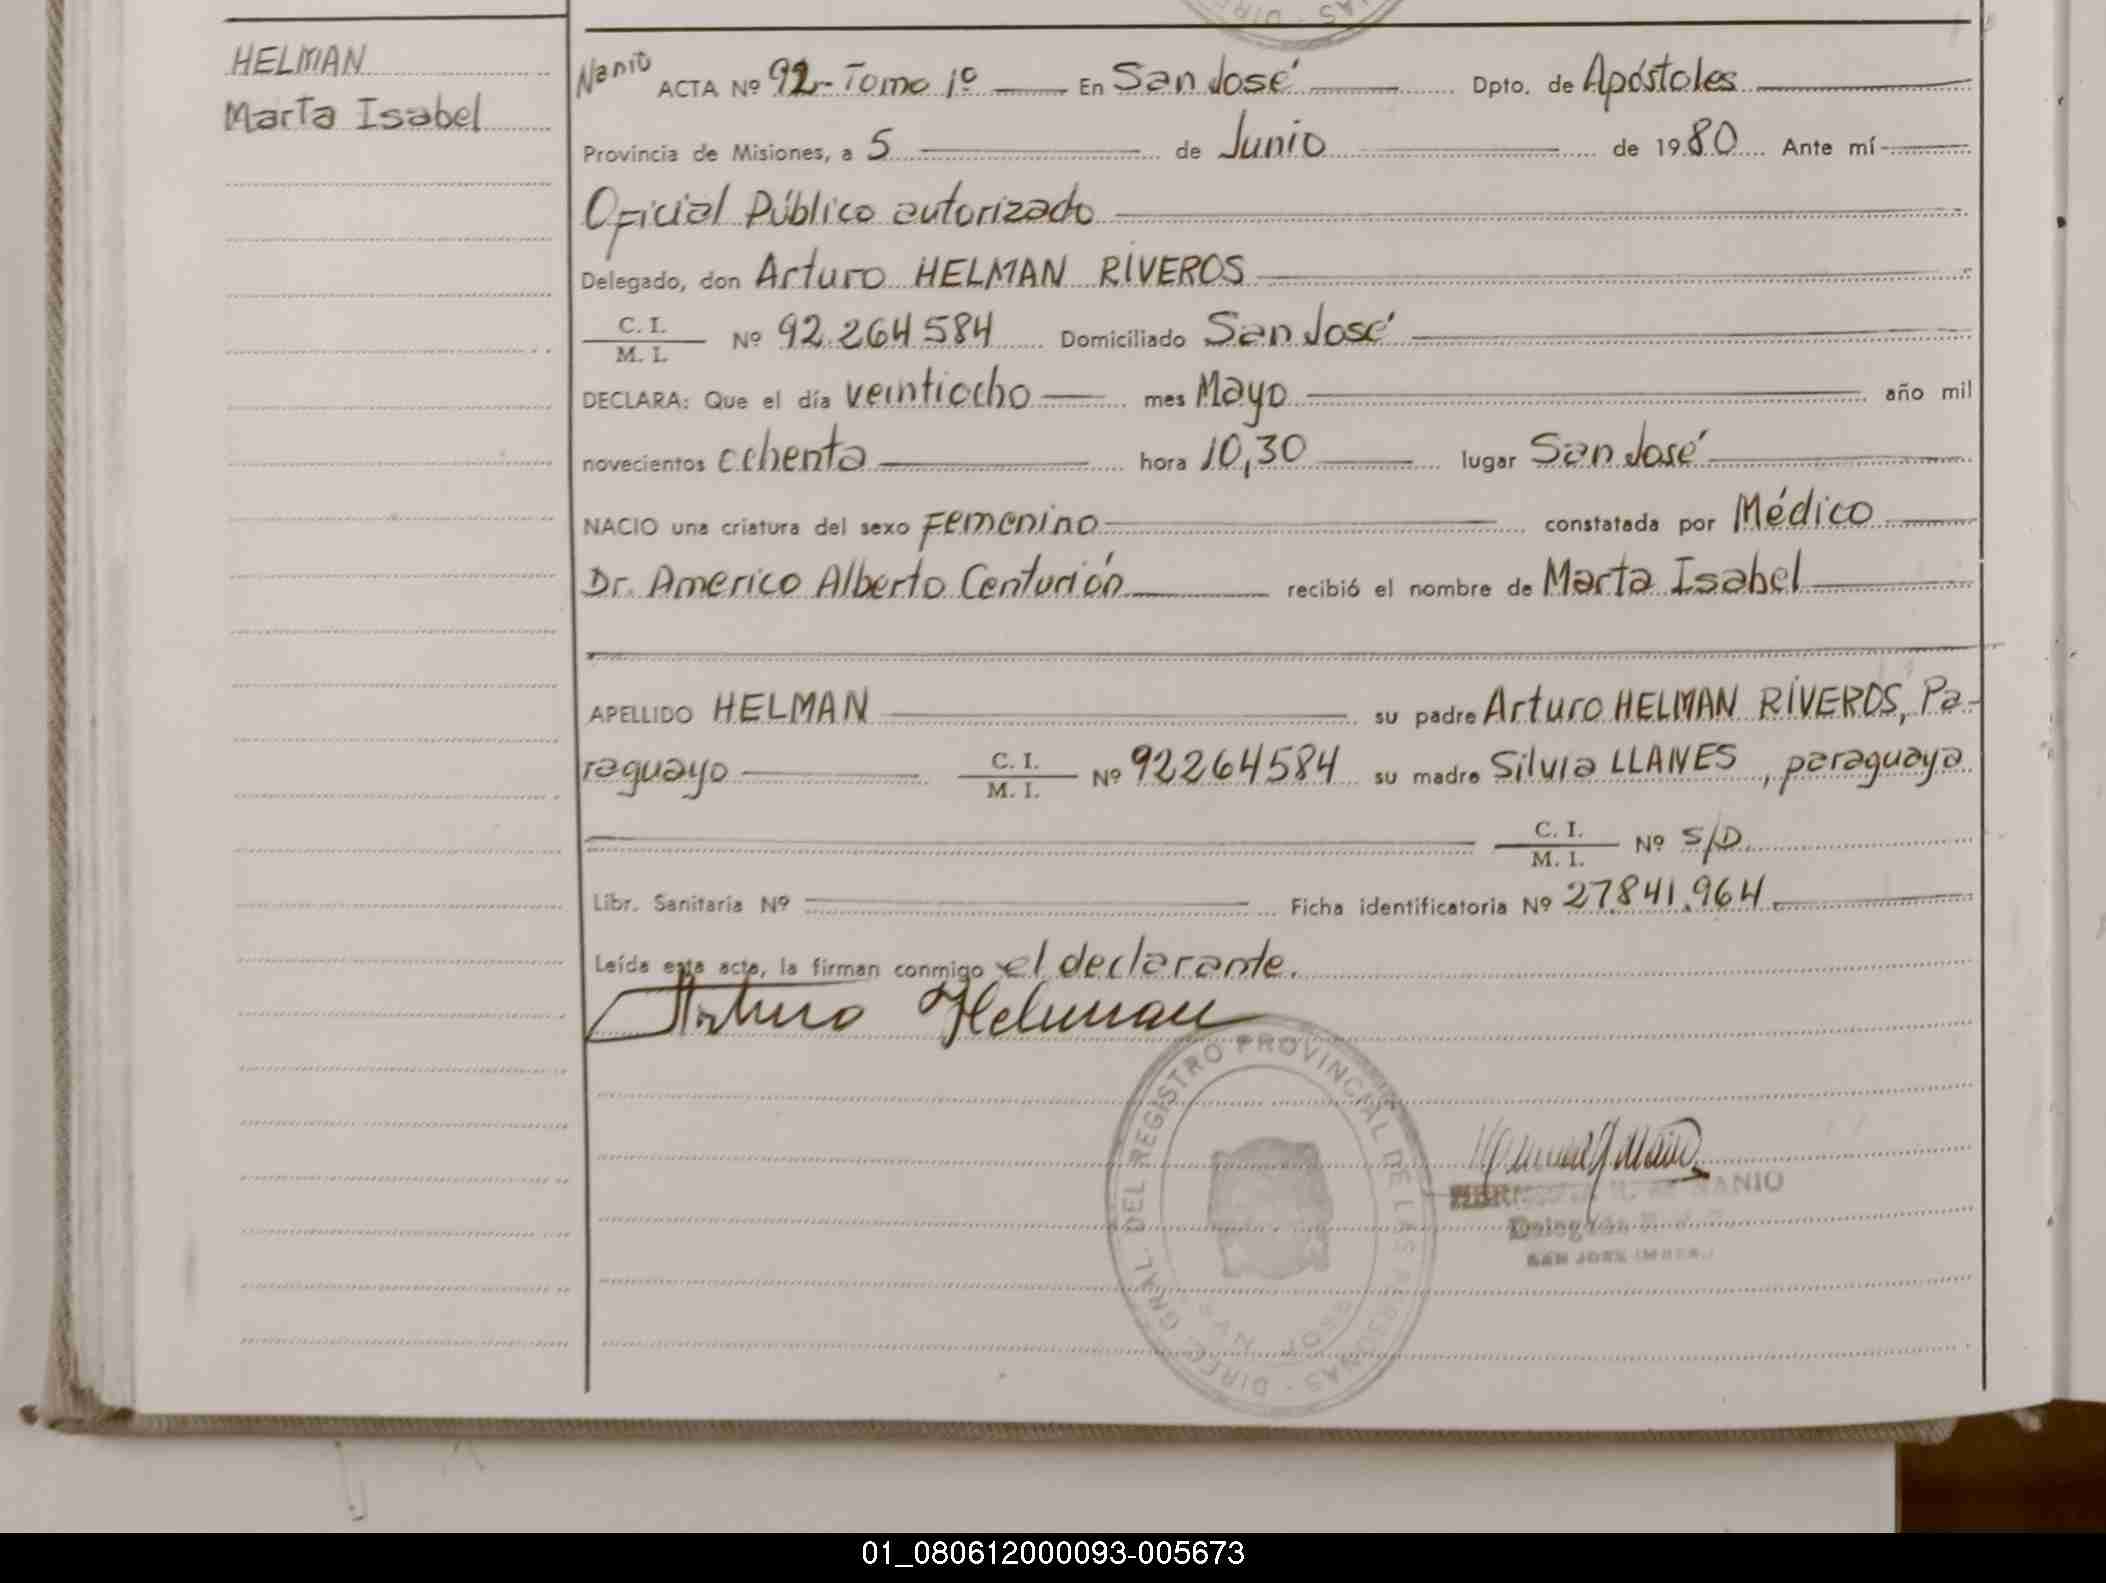 HELMAN
Marta Isabel
Nanio ACTA Nº 92 - Tomo 1º En San José Dpto. de Apóstoles
Provincia de Misiones, a 5 de Junio de 1980 Ante mí
Oficial Público autorizado
Delegado, don Arturo HELMAN RIVEROS
C. I.
M. I. Nº 92.264584 Domiciliado San José
DECLARA: Que el día veintiocho mes Mayo año mil
novecientos ochenta hora 10,30 lugar San José
NACIO una criatura del sexo Femenino constatada por Médico
Dr. Americo Alberto Centurión recibió el nombre de Marta Isabel
APELLIDO HELMAN su padre Arturo HELMAN RIVEROS, Pa-
raguayo C. I. M. I. Nº 92264584 su madre Silvia LLANES, paraguaya
C. I. M. I. Nº S/D
Libr. Sanitaria Nº Ficha identificatoria Nº 27.841.964
Leída esta acta, la firman conmigo el declarante.
Arturo Helman
DIREC. GRAL. DEL REGISTRO PROVINCIAL DE LAS PERSONAS
NANIO
Delegada
SAN JOSE
01_080612000093-005673